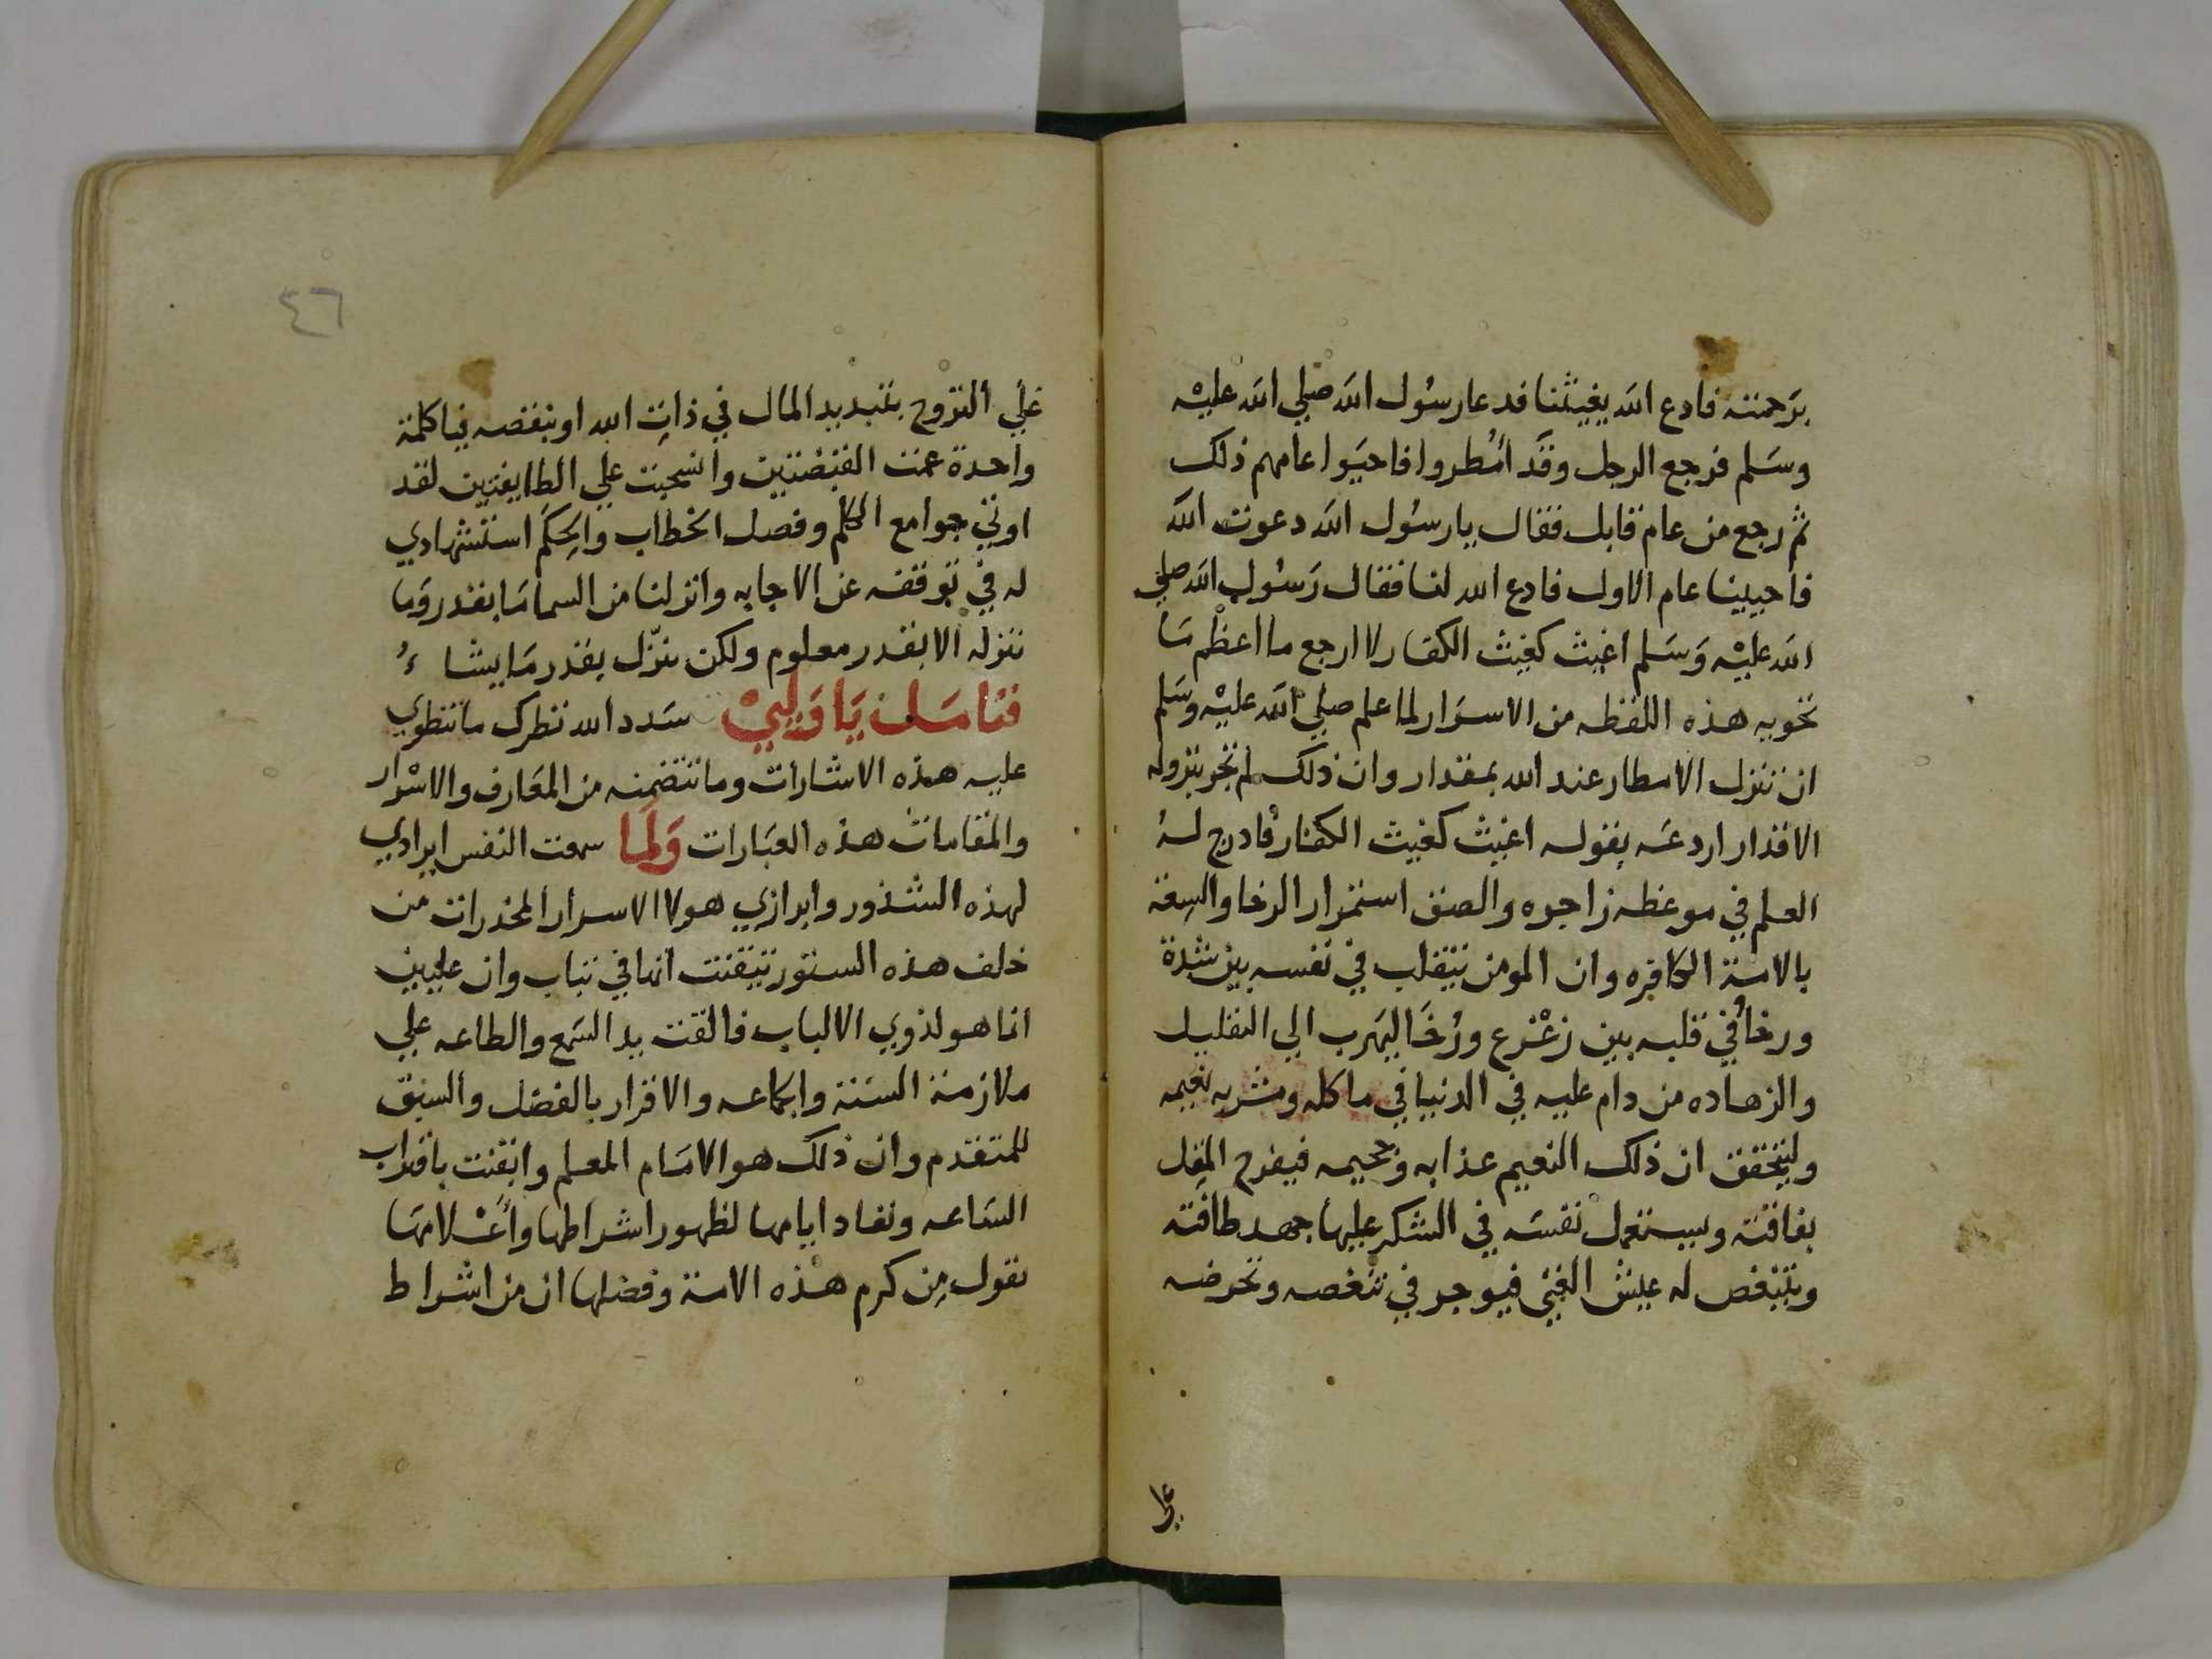 برحمته فادع الله يغيثنا فدعا رسول الله صلي الله عليه
وسلم فرجع الرجل وقد أمطروا فاحيوا عامهم ذلك
ثم رجع من عام قابل فقال يا رسول الله دعوت الله
فأحيينا عام الاول فادع الله لنا فقال رسول الله صلي
الله عليه وسلم اغيث كغيث الكفار لا ارجع ما اعظم ما
تحويه هذه اللفظه من الاسرار لما علم صلي الله عليه وسلم
ان تنزل الامطار عند الله بمقدار وان ذلك لم تجر بنزوله
الاقدار اردعه بقوله اغيث كغيث الكفار فادرج له
العلم في موعظه زاجره والصق استمرار الرخا والسعة
بالامة الكافره وان المومن يتقلب في نفسه بين شدة
ورخأ وفي قلبه بين زعزع ورخا ليهرب الي التقليل
والزهاده من دام عليه في الدنيا في ماكله ومشربه نعيمه
وليتحقق ان ذلك النعيم عذابه وجحيمه فيفرح المقل
بفاقته ويستعمل نفسه في الشكر عليها جهد طاقته
ويتنغص له عيش الغني فيوجر في تنغصه وتحرضه
علي
٤٦
علي التروح بتبديد المال في ذات الله او بنقصه فيا كلمة
واحدة عمت القبضتين وانسحبت علي الطايفتين لقد
اوتي جوامع الكلم وفصل الخطاب والحكم استشهادي
له في توقفه عن الاجابه وانزلنا من السما ما بقدر وما
ننزله الا بقدر معلوم ولكن ينزل بقدر ما يشاء
فتامل يا ولي سدد الله نظرك ما تنطوي
عليه هذه الاشارات وما تتضمنه من المعارف والاسرار
والمقامات هذه العبارات ولما سمعت النفس ايرادي
لهذه الشذور وابرازي هولا الاسرار المخدرات من
خلف هذه الستور تيقنت انها في تباب وان عليين
انما هو لذوي الالباب فالقت يد السمع والطاعه علي
ملازمة السنة والجماعه والاقرار بالفضل والسبق
للمتقدم وان ذلك هو الامام المعلم وايقنت باقتراب
الساعه ونفاد ايامها لظهور اشراطها وأعلامها
نقول من كرم هذه الامة وفضلها ان من اشراط